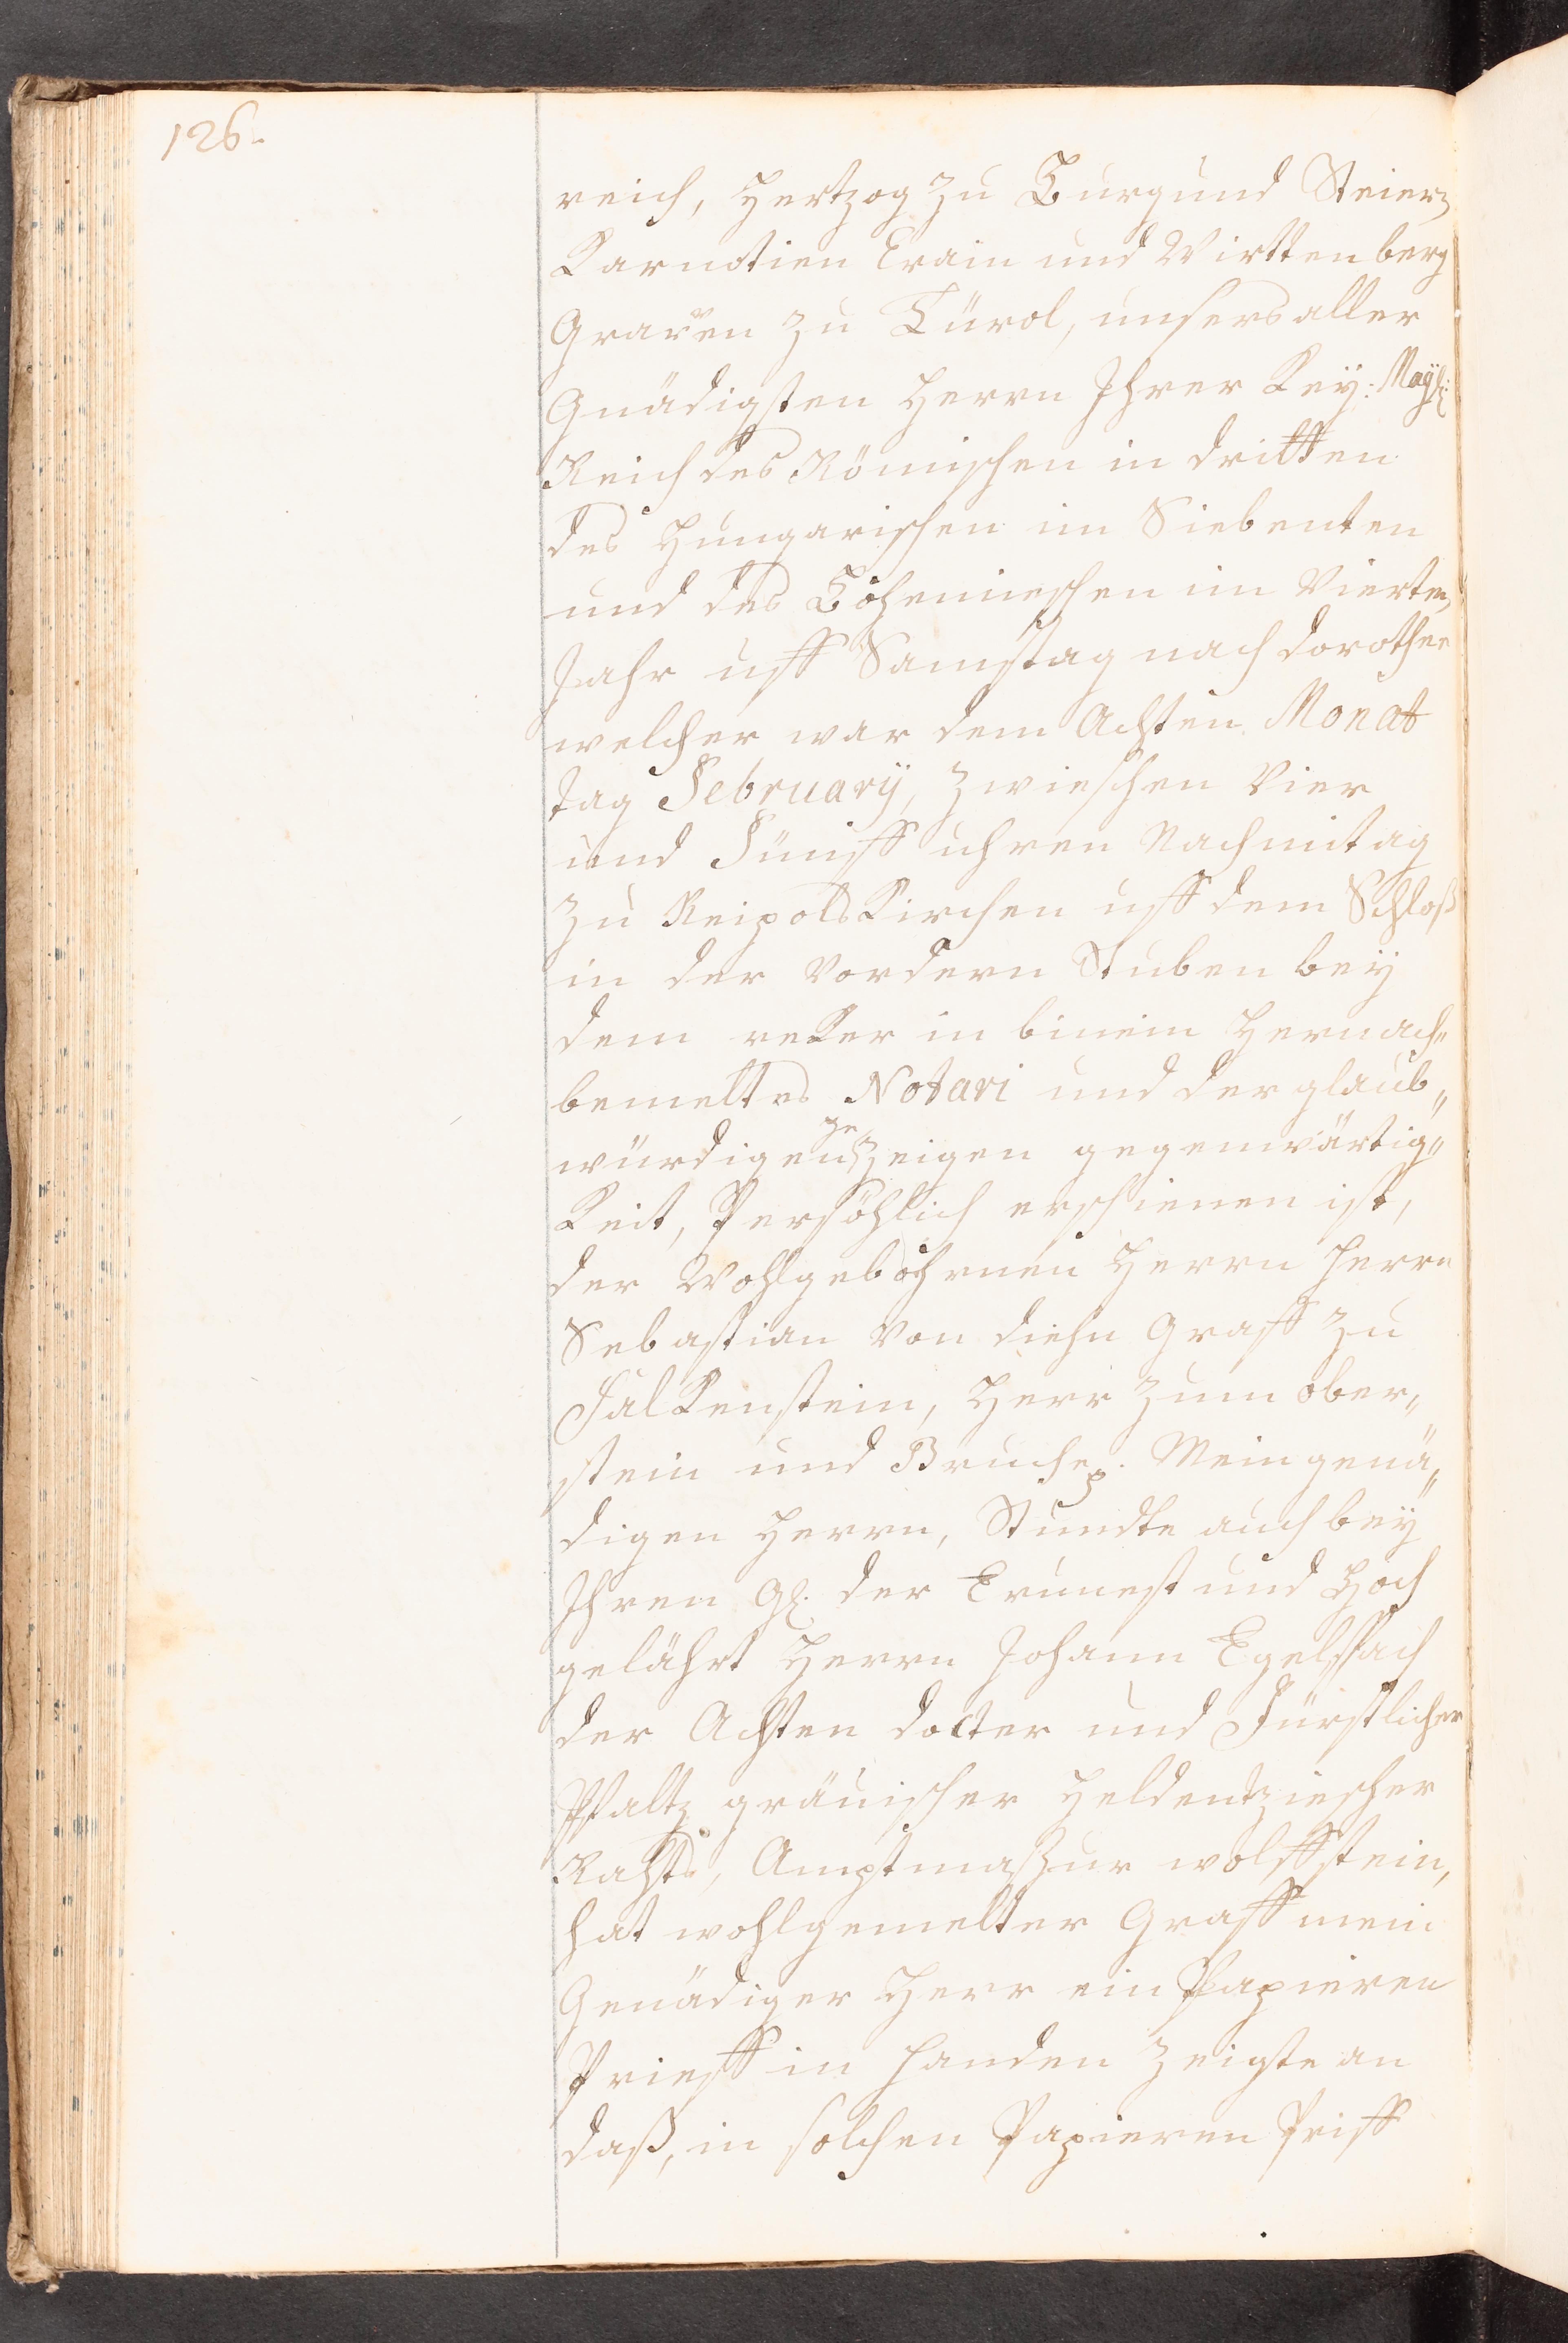 126.
reich, Hertzog zu Burgund Steier,
Karnotien Crain und Wirttenberg
Graven zu Türol, unsers aller
Gnädigsten Herrn Ihrer Key: May:
Reich des Römischen in dritten
des Hungarischen im Siebenten
und des Böhemieschen im Vierten
Jahr uff Samstag nach dorothee
welcher war dem Achten Monat
tag February, zwieschen Vier
und Fünff uhren Nachmitag
zu Reipoldskirchen uff dem Schloß
in der Vordern Stuben bey
dem reker in beinem hernach„
bemeltes Notari und der glaub„
würdigen gezeigen gegenwärtig„
Keit, Persöhlich erschienen ist,
der Wohlgebohrnen Herrn Herrn
Sebastian von diehn Graff zu
Falkenstein, Herr zum ober„
stein und Bruch p. Mein genä„
digen Herrn, Stundte auch bey
Ihren G. der Ernnest und Hoch
gelährt Herrn Johann
der Achten docter und Fürstlicher
Pfaltz gräuischer Heldentziescher
Rahts, Amptmaßur wolffstein,
hat wohlgemelter Graff mein
Genädiger Herr ein Papieren
Prieff in handen zeigte an
daß, in solchen Papieren Priff